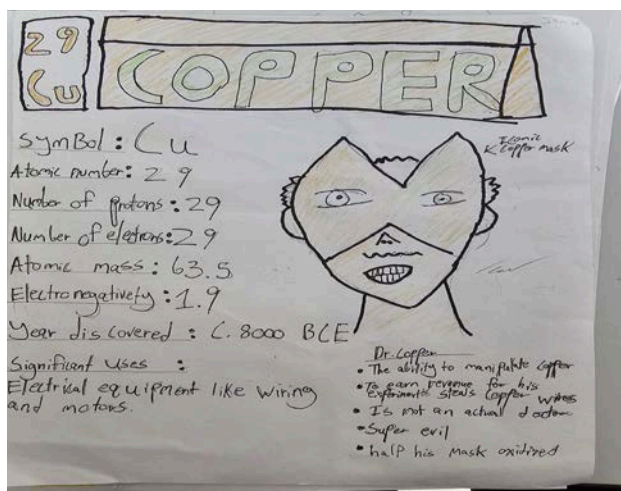 29
Cu
COPPER
Symbol : Cu
Atomic number: 29
Number of protons : 29
Number of electrons: 29
Atomic mass : 63.5
Electronegativity : 1.9
Year discovered : C. 8000 BCE
Significant uses :
Electrical equipment like wiring
and motors.
Iconic
Copper mask
Dr. Copper
• The ability to manipulate copper
• To earn revenue for his
experiments steals copper wires
• Is not an actual doctor
• Super evil
• half his mask oxidized